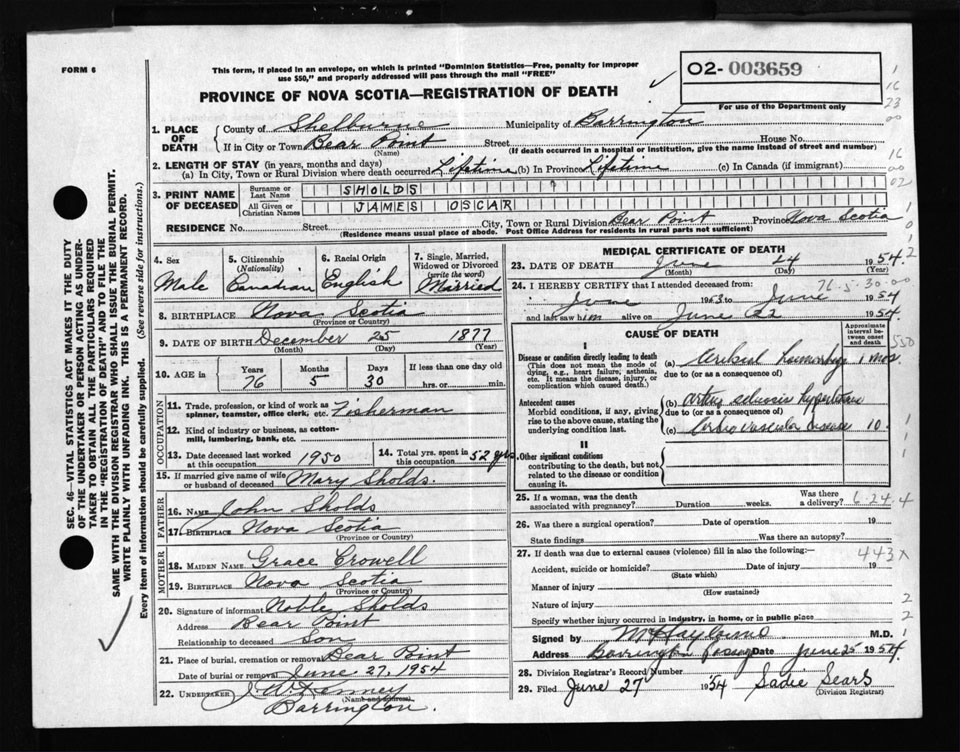 FORM 6
This form, if placed in an envelope, on which is printed "Dominion Statistics—Free, penalty for improper
use $50," and properly addressed will pass through the mail "FREE"
02-003659
For use of the Department only
PROVINCE OF NOVA SCOTIA—REGISTRATION OF DEATH
1. PLACE OF DEATH County of Shelburne Municipality of Barrington
If in City or Town Bear Point Street House No.
(Name) (If death occurred in a hospital or institution, give the name instead of street and number)
2. LENGTH OF STAY (in years, months and days)
(a) In City, Town or Rural Division where death occurred Lifetime (b) In Province Lifetime (c) In Canada (if immigrant)
3. PRINT NAME OF DECEASED
Surname or Last Name SHOLDS
All Given or Christian Names JAMES OSCAR
RESIDENCE No. Street City, Town or Rural Division Bear Point Province Nova Scotia
(Residence means usual place of abode. Post Office Address for residents in rural parts not sufficient)
4. Sex Male
5. Citizenship (Nationality) Canadian
6. Racial Origin English
7. Single, Married, Widowed or Divorced (write the word) Married
8. BIRTHPLACE Nova Scotia
(Province or Country)
9. DATE OF BIRTH December 25 1877
(Month) (Day) (Year)
10. AGE in Years Months Days If less than one day old
76 5 30 hrs. or min.
OCCUPATION
11. Trade, profession, or kind of work as spinner, teamster, office clerk, etc. Fisherman
12. Kind of industry or business, as cotton-mill, lumbering, bank, etc.
13. Date deceased last worked at this occupation 1950
14. Total yrs. spent in this occupation 52 yrs.
15. If married give name of wife or husband of deceased Mary Sholds.
FATHER
16. NAME John Sholds
17. BIRTHPLACE Nova Scotia
(Province or Country)
MOTHER
18. MAIDEN NAME Grace Crowell
19. BIRTHPLACE Nova Scotia
(Province or Country)
20. Signature of informant Noble Sholds
Address Bear Point
Relationship to deceased Son
21. Place of burial, cremation or removal Bear Point
Date of burial or removal June 27, 1954
22. UNDERTAKER J. W. Kenney
(Name and address)
Barrington.
MEDICAL CERTIFICATE OF DEATH
23. DATE OF DEATH June 24 1954
(Month) (Day) (Year)
24. I HEREBY CERTIFY that I attended deceased from: 76-5-30-00
June 1953 to June 1954
and last saw him alive on June 22 1954.
CAUSE OF DEATH
Approximate interval between onset and death
I
Disease or condition directly leading to death
(This does not mean the mode of dying, e.g., heart failure, asthenia, etc. It means the disease, injury, or complication which caused death.)
(a) 1 mos.
due to (or as a consequence of)
Antecedent causes
Morbid conditions, if any, giving rise to the above cause, stating the underlying condition last.
(b)
due to (or as a consequence of)
(c) Cardio vascular disease 10
II
Other significant conditions
contributing to the death, but not related to the disease or condition causing it.
25. If a woman, was the death associated with pregnancy? Duration weeks. Was there a delivery? 6-24-4
26. Was there a surgical operation? Date of operation 19
State findings Was there an autopsy?
27. If death was due to external causes (violence) fill in also the following:— 443X
Accident, suicide or homicide? Date of injury 19
(State which)
Manner of injury
(How sustained)
Nature of injury
Specify whether injury occurred in industry, in home, or in public place
Signed by M.D.
Address Barrington Passage Date June 25 1954.
28. Division Registrar's Record Number
29. Filed June 27 1954 Sadie Sears
(Division Registrar)
SEC. 46—VITAL STATISTICS ACT MAKES IT THE DUTY
OF THE UNDERTAKER OR PERSON ACTING AS UNDER-
TAKER TO OBTAIN ALL THE PARTICULARS REQUIRED
IN THE "REGISTRATION OF DEATH" AND TO FILE THE
SAME WITH THE DIVISION REGISTRAR WHO SHALL ISSUE THE BURIAL PERMIT.
WRITE PLAINLY WITH UNFADING INK. THIS IS A PERMANENT RECORD.
Every item of information should be carefully supplied. (See reverse side for instructions.)